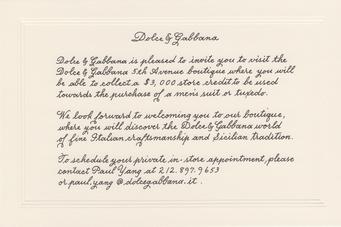 Dolce & Gabbana
Dolce & Gabbana is pleased to invite you to visit the
Dolce & Gabbana 5th Avenue boutique where you will
be able to collect a $3,000 store credit to be used
towards the purchase of a men's suit or tuxedo.
We look forward to welcoming you to our boutique,
where you will discover the Dolce & Gabbana world
of fine Italian craftsmanship and Sicilian tradition.
To schedule your private in-store appointment, please
contact Paul Yang at 212.897.9653
or paul.yang@dolcegabbana.it.